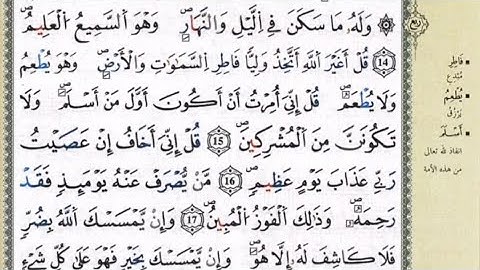 ربع
۞ وَلَهُۥ مَا سَكَنَ فِي اِ۬ليْلِ وَالنَّهَارِۖ وَهُوَ اَ۬لسَّمِيعُ اُ۬لْعَلِيمُۖ
14 قُلَ اَغَيْرَ اَ۬للَّهِ أَتَّخِذُ وَلِيّاٗ فَاطِرِ اِ۬لسَّمَٰوَٰتِ وَالَارْضِۖ وَهُوَ يُطْعِمُ
وَلَا يُطْعَمُۖ قُلِ اِنِّيَ أُمِرْتُ أَنَ اَكُونَ أَوَّلَ مَنَ اَسْلَمَۖ وَلَا
تَكُونَنَّ مِنَ اَ۬لْمُشْرِكِينَۖ 15 قُلِ اِنِّيَ أَخَافُ إِنْ عَصَيْتُ
رَبِّے عَذَابَ يَوْمٍ عَظِيمٖۖ 16 مَّنْ يُّصْرَفْ عَنْهُ يَوْمَئِذٖ فَقَدْ
رَحِمَهُۥۖ وَذَٰلِكَ اَ۬لْفَوْزُ اُ۬لْمُبِينُۖ 17 وَإِنْ يَّمْسَسْكَ اَ۬للَّهُ بِضُرّٖ
فَلَا كَاشِفَ لَهُۥ إِلَّا هُوَۖ وَإِنْ يَّمْسَسْكَ بِخَيْرٖ فَهُوَ عَلَىٰ كُلِّ شَےْءٖ
فَاطِرِ
مُبْدِع
يُطْعِمُ
يَرْزُقُ
أَسْلَمَ
انقاد لله تعالى
من هذه الأمة